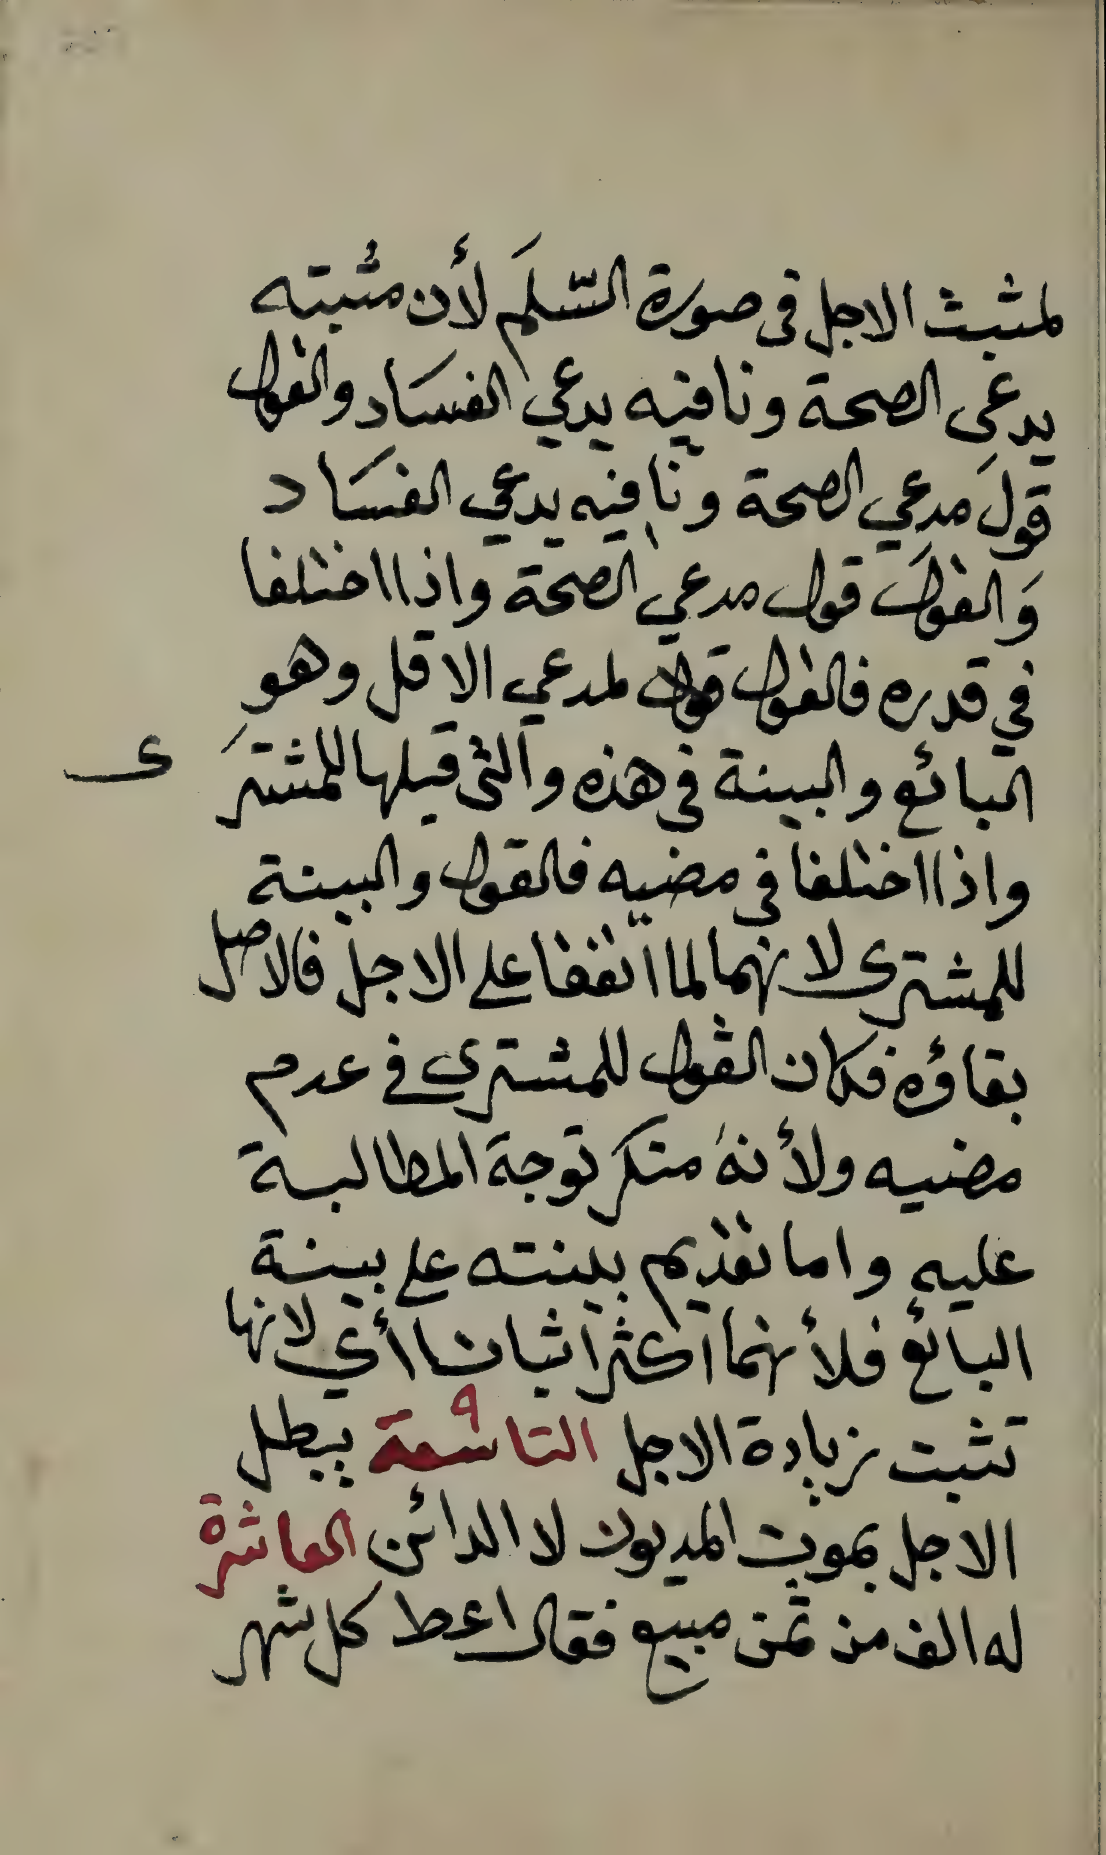 لمثبث الاجل فى صورة السّلَم لأن مثبته
يدعى الصحة ونافيه يدعي الفسَاد والقول
قولَ مدعي الصحة ونافيه يدعي الفسَاد
وَالقول قول مدعي الصحة واذا اختلفا
في قدره فالقول قول لمدعي الاقل وهو
البائع والبينة في هذه والتى قبلها للمشترى
واذا اختلفا في مضيه فالقول والبينة
للمشترى لانهما لما اتفقا على الاجل فالاصل
بقاؤه فكان القول للمشتري في عدم
مضيه ولأنه منكر توجة المطالبة
عليه واما تقديم بينته على بينة
البائع فلأنهما اكثر اثباتا أي لانها
تثبت زيادة الاجل التاسعة ٩ يبطل
الاجل بموت المديون لا الدائن العاشرة
له الف من ثمن مبيع فقال اعط كل شهر